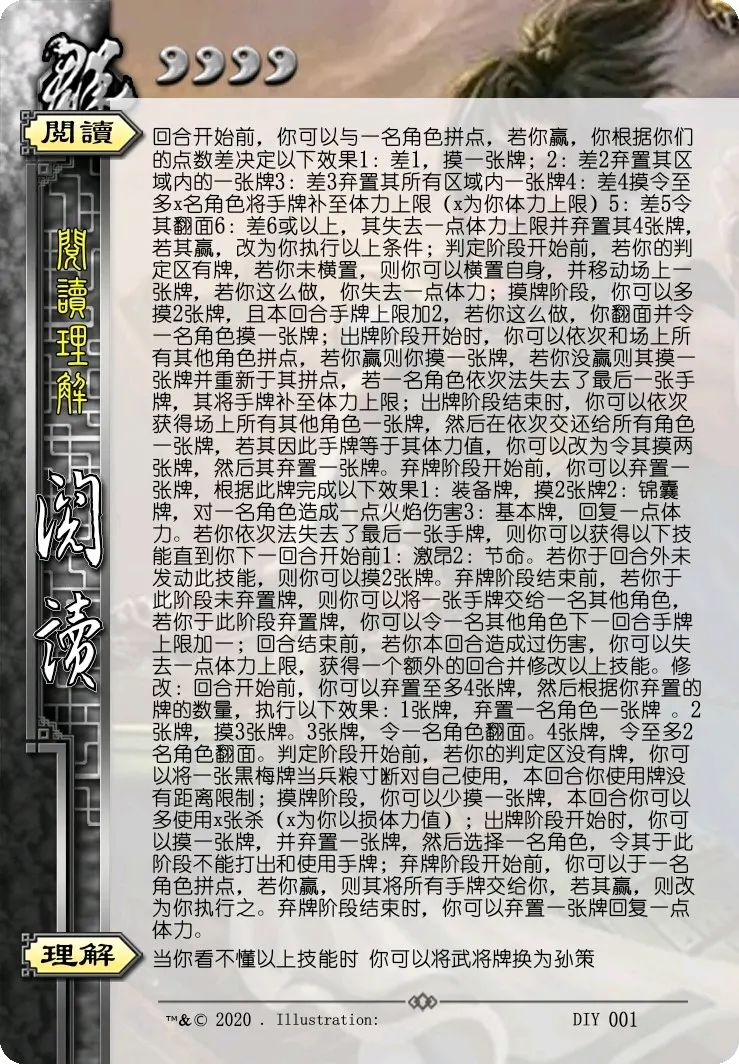 群
閱讀
回合开始前，你可以与一名角色拼点，若你赢，你根据你们
的点数差决定以下效果1：差1，摸一张牌；2：差2弃置其区
域内的一张牌3：差3弃置其所有区域内一张牌4：差4摸令至
多x名角色将手牌补至体力上限（x为你体力上限）5：差5令
其翻面6：差6或以上，其失去一点体力上限并弃置其4张牌，
若其赢，改为你执行以上条件；判定阶段开始前，若你的判
定区有牌，若你未横置，则你可以横置自身，并移动场上一
张牌，若你这么做，你失去一点体力；摸牌阶段，你可以多
摸2张牌，且本回合手牌上限加2，若你这么做，你翻面并令
一名角色摸一张牌；出牌阶段开始时，你可以依次和场上所
有其他角色拼点，若你赢则你摸一张牌，若你没赢则其摸一
张牌并重新于其拼点，若一名角色依次法失去了最后一张手
牌，其将手牌补至体力上限；出牌阶段结束时，你可以依次
获得场上所有其他角色一张牌，然后在依次交还给所有角色
一张牌，若其因此手牌等于其体力值，你可以改为令其摸两
张牌，然后其弃置一张牌。弃牌阶段开始前，你可以弃置一
张牌，根据此牌完成以下效果1：装备牌，摸2张牌2：锦囊
牌，对一名角色造成一点火焰伤害3：基本牌，回复一点体
力。若你依次法失去了最后一张手牌，则你可以获得以下技
能直到你下一回合开始前1：激昂2：节命。若你于回合外未
发动此技能，则你可以摸2张牌。弃牌阶段结束前，若你于
此阶段未弃置牌，则你可以将一张手牌交给一名其他角色，
若你于此阶段弃置牌，你可以令一名其他角色下一回合手牌
上限加一；回合结束前，若你本回合造成过伤害，你可以失
去一点体力上限，获得一个额外的回合并修改以上技能。修
改：回合开始前，你可以弃置至多4张牌，然后根据你弃置的
牌的数量，执行以下效果：1张牌，弃置一名角色一张牌 。2
张牌，摸3张牌。3张牌，令一名角色翻面。4张牌，令至多2
名角色翻面。判定阶段开始前，若你的判定区没有牌，你可
以将一张黑梅牌当兵粮寸断对自己使用，本回合你使用牌没
有距离限制；摸牌阶段，你可以少摸一张牌，本回合你可以
多使用x张杀（x为你以损体力值）；出牌阶段开始时，你可
以摸一张牌，并弃置一张牌，然后选择一名角色，令其于此
阶段不能打出和使用手牌；弃牌阶段开始前，你可以于一名
角色拼点，若你赢，则其将所有手牌交给你，若其赢，则改
为你执行之。弃牌阶段结束时，你可以弃置一张牌回复一点
体力。
閱讀理解
阅读
理解
当你看不懂以上技能时 你可以将武将牌换为孙策
™&© 2020 . Illustration:
DIY 001